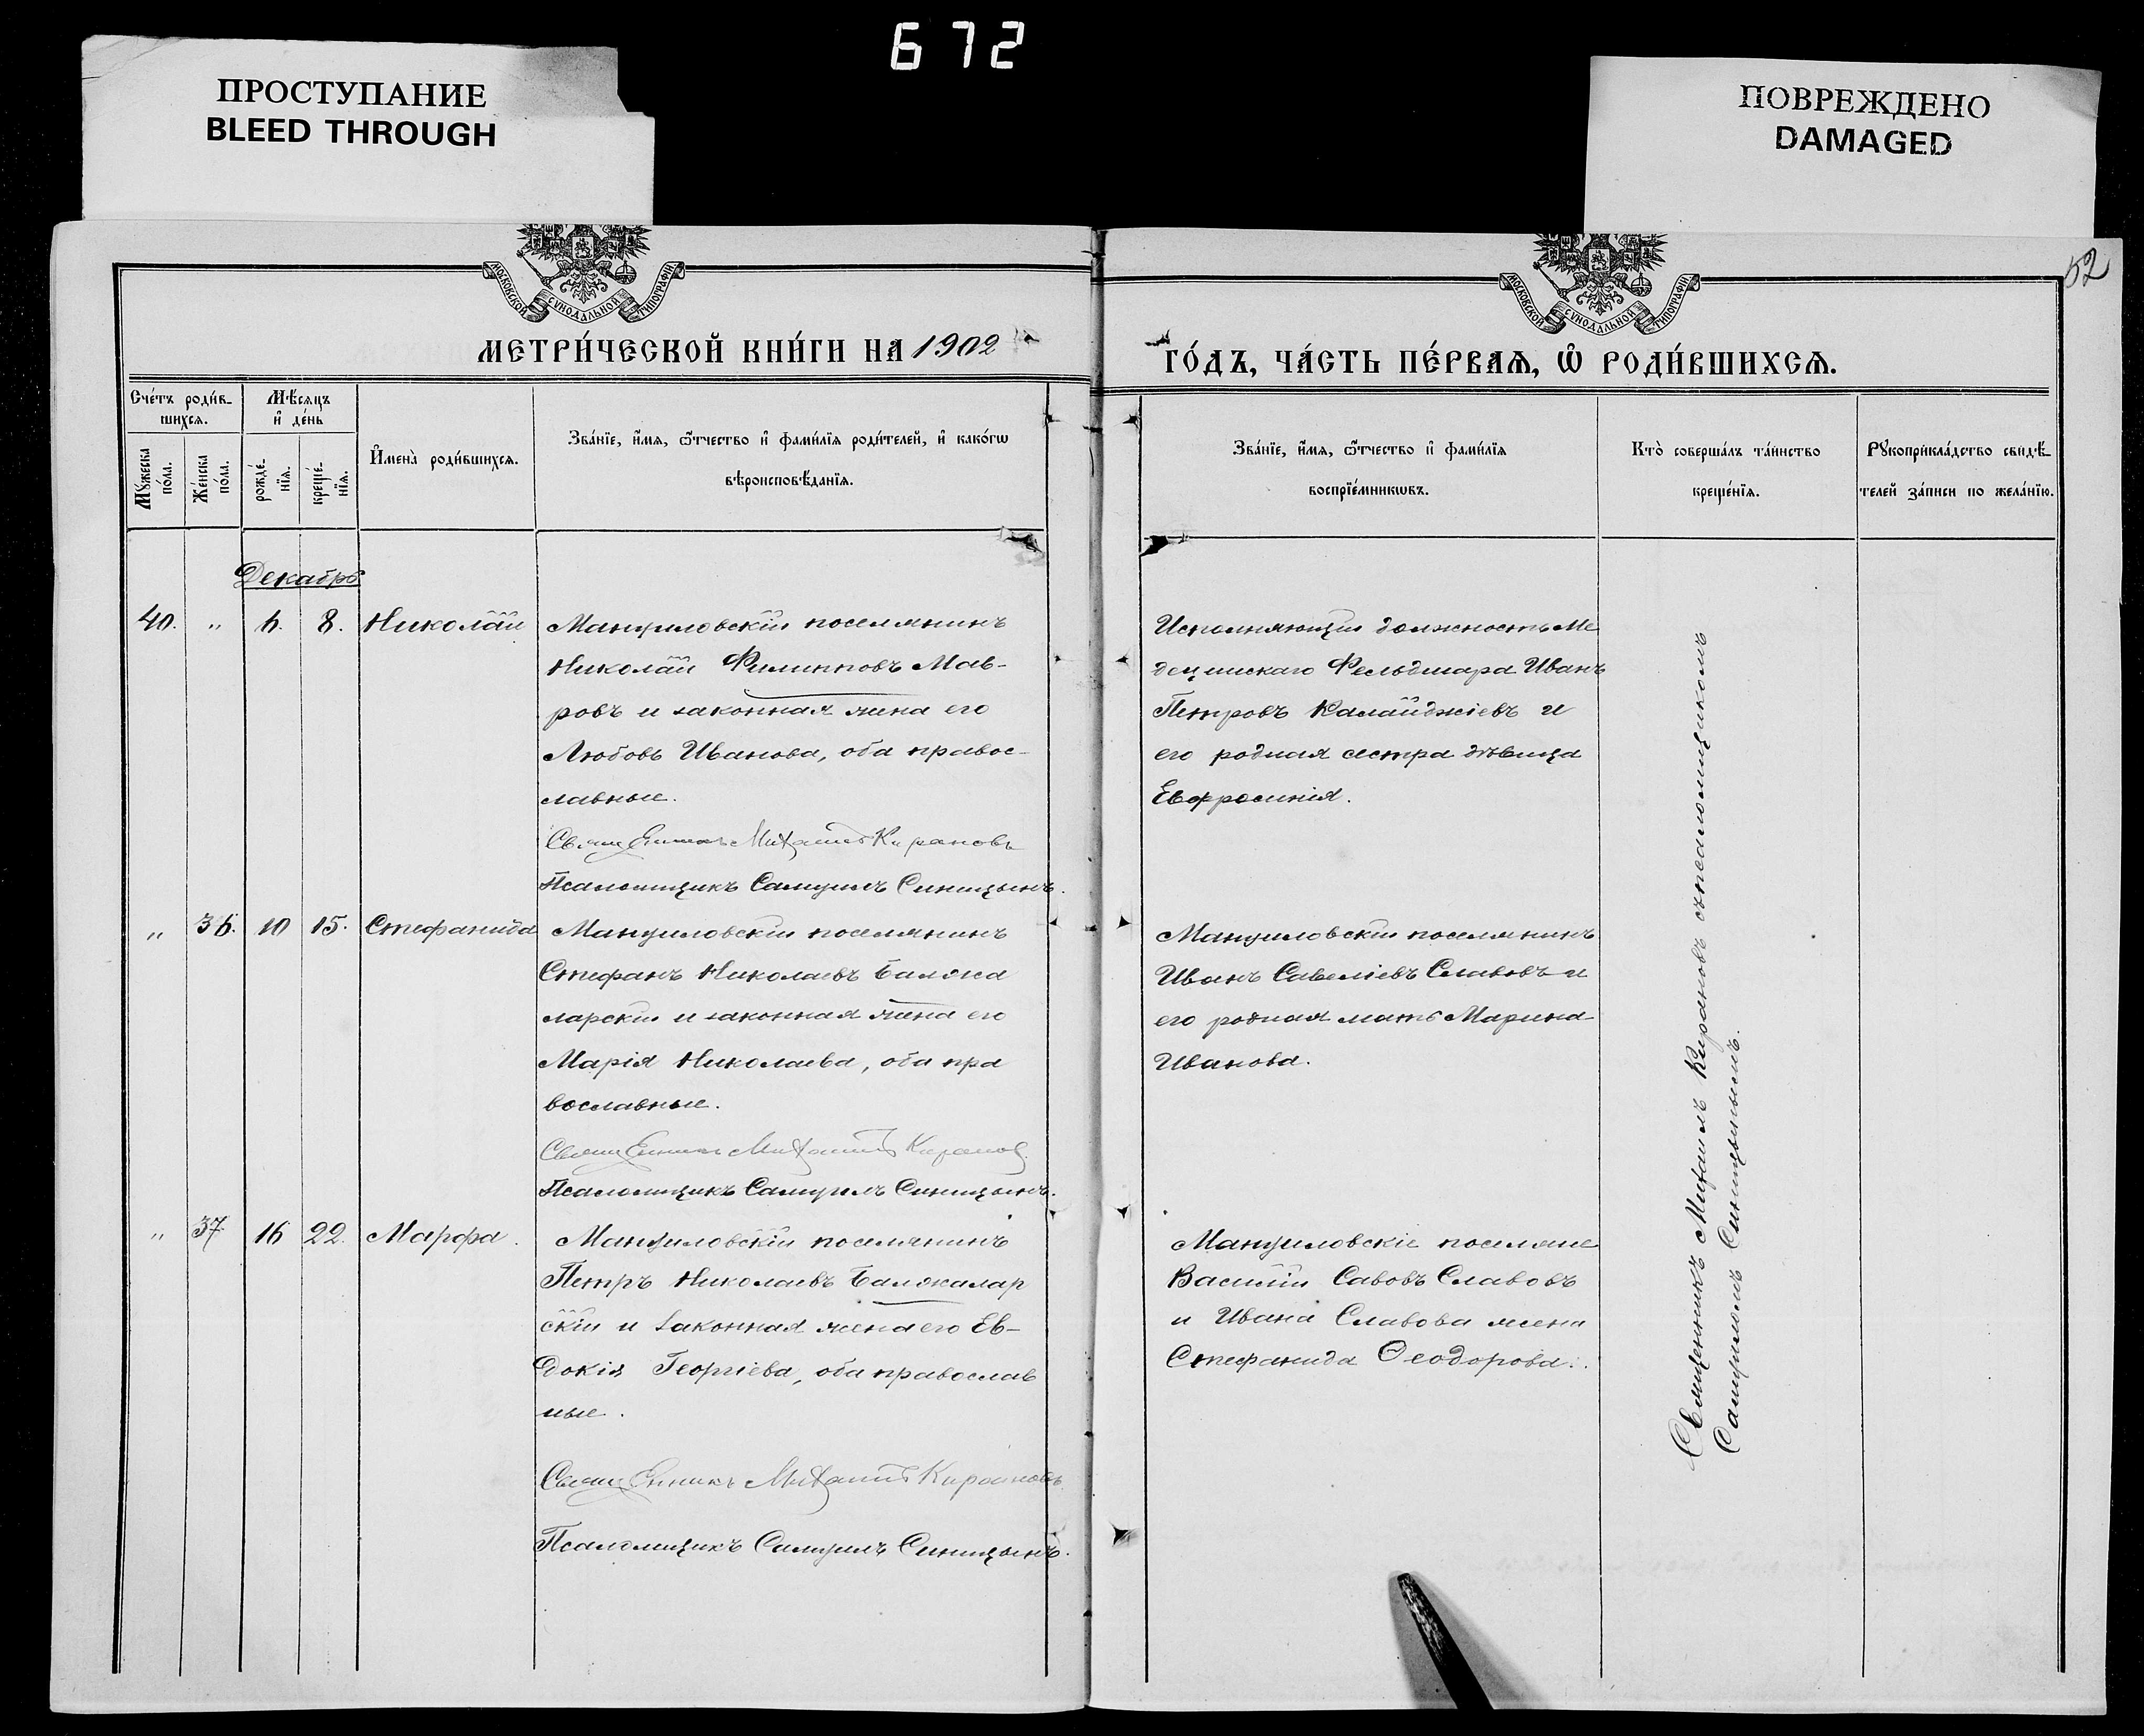 672
ПРОСТУПАНИЕ
BLEED THROUGH
ПОВРЕЖДЕНО
DAMAGED
МОСКОВСКОЙ СѴНОДАЛЬНОЙ ТИПОГРАФІИ
МОСКОВСКОЙ СѴНОДАЛЬНОЙ ТИПОГРАФІИ
52
МЕТРИ́ЧЕСКОЙ КНИ́ГИ НА 1902
ГО́ДЪ, ЧА́СТЬ ПЕ́РВАѦ, Ѽ РОДИ́ВШИХСѦ.
Сче́тъ роди́в-
шихсѧ.
Мѣ́сѧцъ
и҆ де́нь
Мꙋ́жеска
по́ла.
Же́нска
по́ла.
рожде́-
нїѧ.
креще́-
нїѧ.
И҆мена̀ роди́вшихсѧ.
Зва́нїе, и҆́мѧ, ѻ҆́тчество и҆ фами́лїѧ роди́телей, и҆ како́гѡ
вѣроисповѣ́данїѧ.
Зва́нїе, и҆́мѧ, ѻ҆́тчество и҆ фами́лїѧ
воспрїе́мникѡвъ.
Кто̀ соверша́лъ та́инство
креще́нїѧ.
Рꙋкоприкла́дство свидѣ́-
телей за́писи по жела́нїю.
Декабрь
40. " 6. 8. Николай
Мануиловскій поселянинъ
Николай Филипповъ Мав-
ровъ и законная жена его
Любовь Иванова, оба правос-
лавные.
Священникъ Михаилъ Кирановъ
Псаломщикъ Самуилъ Синицынъ.
Исполняющій должность Ме
децинскаго Фельдшара Иванъ
Петровъ Калайджіевъ и
его родная сестра дѣвица
Евфросинія.
" 36. 10 15. Стефанида
Мануиловскій поселянинъ
Стефанъ Николаевъ Балжа
ларскій и законная жена его
Марія Николаева, оба пра
вославные.
Священникъ Михаилъ Кирановъ
Псаломщикъ Самуилъ Синицынъ.
Мануиловскій поселянинъ
Иванъ Савеліевъ Славовъ и
его родная мать Марина
Иванова.
" 37 16 22. Марфа.
Мануиловскій поселянинъ
Петръ Николаевъ Балжалар
скій и законная жена его Ев-
докія Георгіева, оба православ
ные.
Священникъ Михаилъ Кирановъ
Псаломщикъ Самуилъ Синицынъ.
Мануиловскіе поселяне
Василій Савовъ Славовъ
и Ивана Славова жена
Стефанида Ѳеодорова.
Священникъ Михаилъ Кирановъ съ псаломщикомъ
Самуиломъ Синицынымъ.